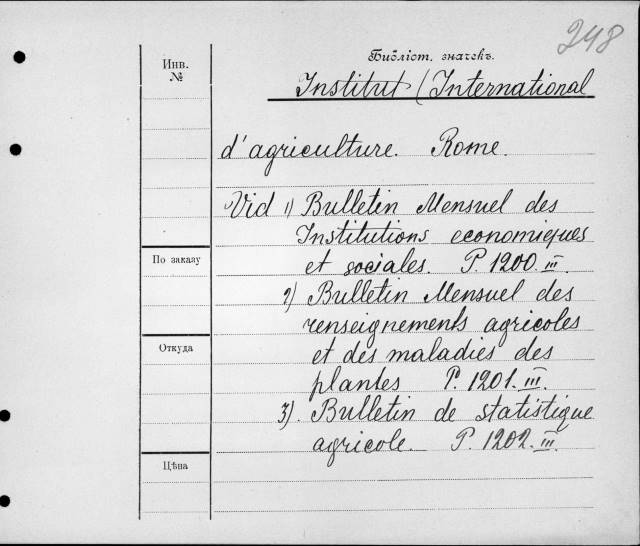 248
Инв.
№
Библіот. значекъ.
Institut (International
d'agriculture. Rome.
Vid 1) Bulletin Mensuel des
Institutions economiques
et sociales. P. 1200. III.
По заказу
2) Bulletin Mensuel des
renseignements agricoles
Откуда
et des maladies des
plantes P. 1201. III.
3). Bulletin de statistique
agricole. P. 1202. III.
Цѣна